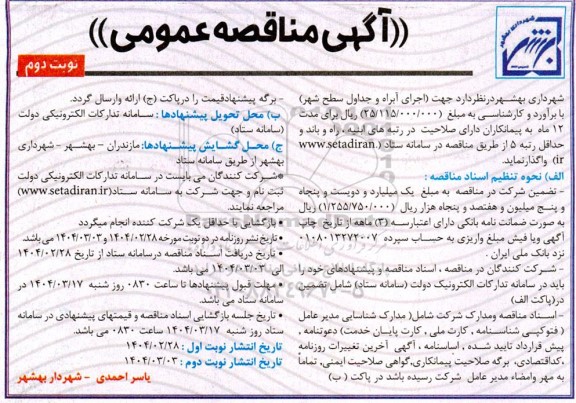 ((آگهی مناقصه عمومی))
نوبت دوم
شهرداری بهشهر
شهرداری بهشهردرنظردارد جهت (اجرای آبراه و جداول سطح شهر)
با برآورد و کارشناسی به مبلغ (۲۵/۱۱۵/۰۰۰/۰۰۰) ریال برای مدت
۱۲ ماه به پیمانکاران دارای صلاحیت در رتبه های ابنیه ، راه و باند و
حداقل رتبه ۵ از طریق مناقصه در سامانه ستاد (www.setadiran.
ir) واگذارنماید.
الف) نحوه تنظیم اسناد مناقصه :
- تضمین شرکت در مناقصه به مبلغ یک میلیارد و دویست و پنجاه
و پنج میلیون و هفتصد و پنجاه هزار ریال (۱/۲۵۵/۷۵۰/۰۰۰) ریال
به صورت ضمانت نامه بانکی دارای اعتبارسه (۳) ماهه از تاریخ چاپ
آگهی ویا فیش مبلغ واریزی به حساب سپرده ۰۱۰۸۰۱۳۲۷۳۰۰۷
نزد بانک ملی ایران .
- شرکت کنندگان در مناقصه ، اسناد مناقصه و پیشنهادهای خود را
باید در سامانه تدارکات الکترونیک دولت (سامانه ستاد) شامل تضمین
در(پاکت الف)
- اسناد مناقصه ومدارک شرکت شامل( مدارک شناسایی مدیر عامل
( فتوکپی شناسنامه ، کارت ملی ، کارت پایان خدمت) دعوتنامه ،
پیش قرارداد تایید شده ، اساسنامه ، آگهی آخرین تغییرات روزنامه
،کداقتصادی، برگه صلاحیت پیمانکاری،گواهی صلاحیت ایمنی، تماماً
به مهر وامضاء مدیر عامل شرکت رسیده باشد در پاکت ( ب)
- برگه پیشنهادقیمت را درپاکت (ج) ارائه وارسال گردد.
ب) محل تحویل پیشنهادها : سامانه تدارکات الکترونیکی دولت
(سامانه ستاد)
ج) محل گشایش پیشنهادها:مازندران – بهشهر – شهرداری
بهشهر از طریق سامانه ستاد
*شرکت کنندگان می بایست در سامانه تدارکات الکترونیکی دولت
ثبت نام و جهت شرکت به سامانه ستاد(www.setadiran.ir)
مراجعه نمایند.
• بازگشایی با حداقل یک شرکت کننده انجام میگردد
• تاریخ نشر روزنامه در دو نوبت مورخه ۱۴۰۴/۰۲/۲۸ و ۱۴۰۴/۰۳/۰۳ می باشد.
• تاریخ دریافت اسناد مناقصه درسامانه ستاد از تاریخ ۱۴۰۴/۰۲/۲۸
الی ۱۴۰۴/۰۳/۰۳ می باشد.
• مهلت قبول پیشنهادها تا ساعت ۰۸۳۰ روز شنبه ۱۴۰۴/۰۳/۱۷ در
سامانه ستاد می باشد.
• تاریخ جلسه بازگشایی اسناد مناقصه و قیمتهای پیشنهادی در سامانه
ستاد روز شنبه ۱۴۰۴/۰۳/۱۷ ساعت ۰۸۳۰ می باشد.
تاریخ انتشار نوبت اول : ۱۴۰۴/۰۲/۲۸
تاریخ انتشار نوبت دوم : ۱۴۰۴/۰۳/۰۳
یاسر احمدی – شهردار بهشهر